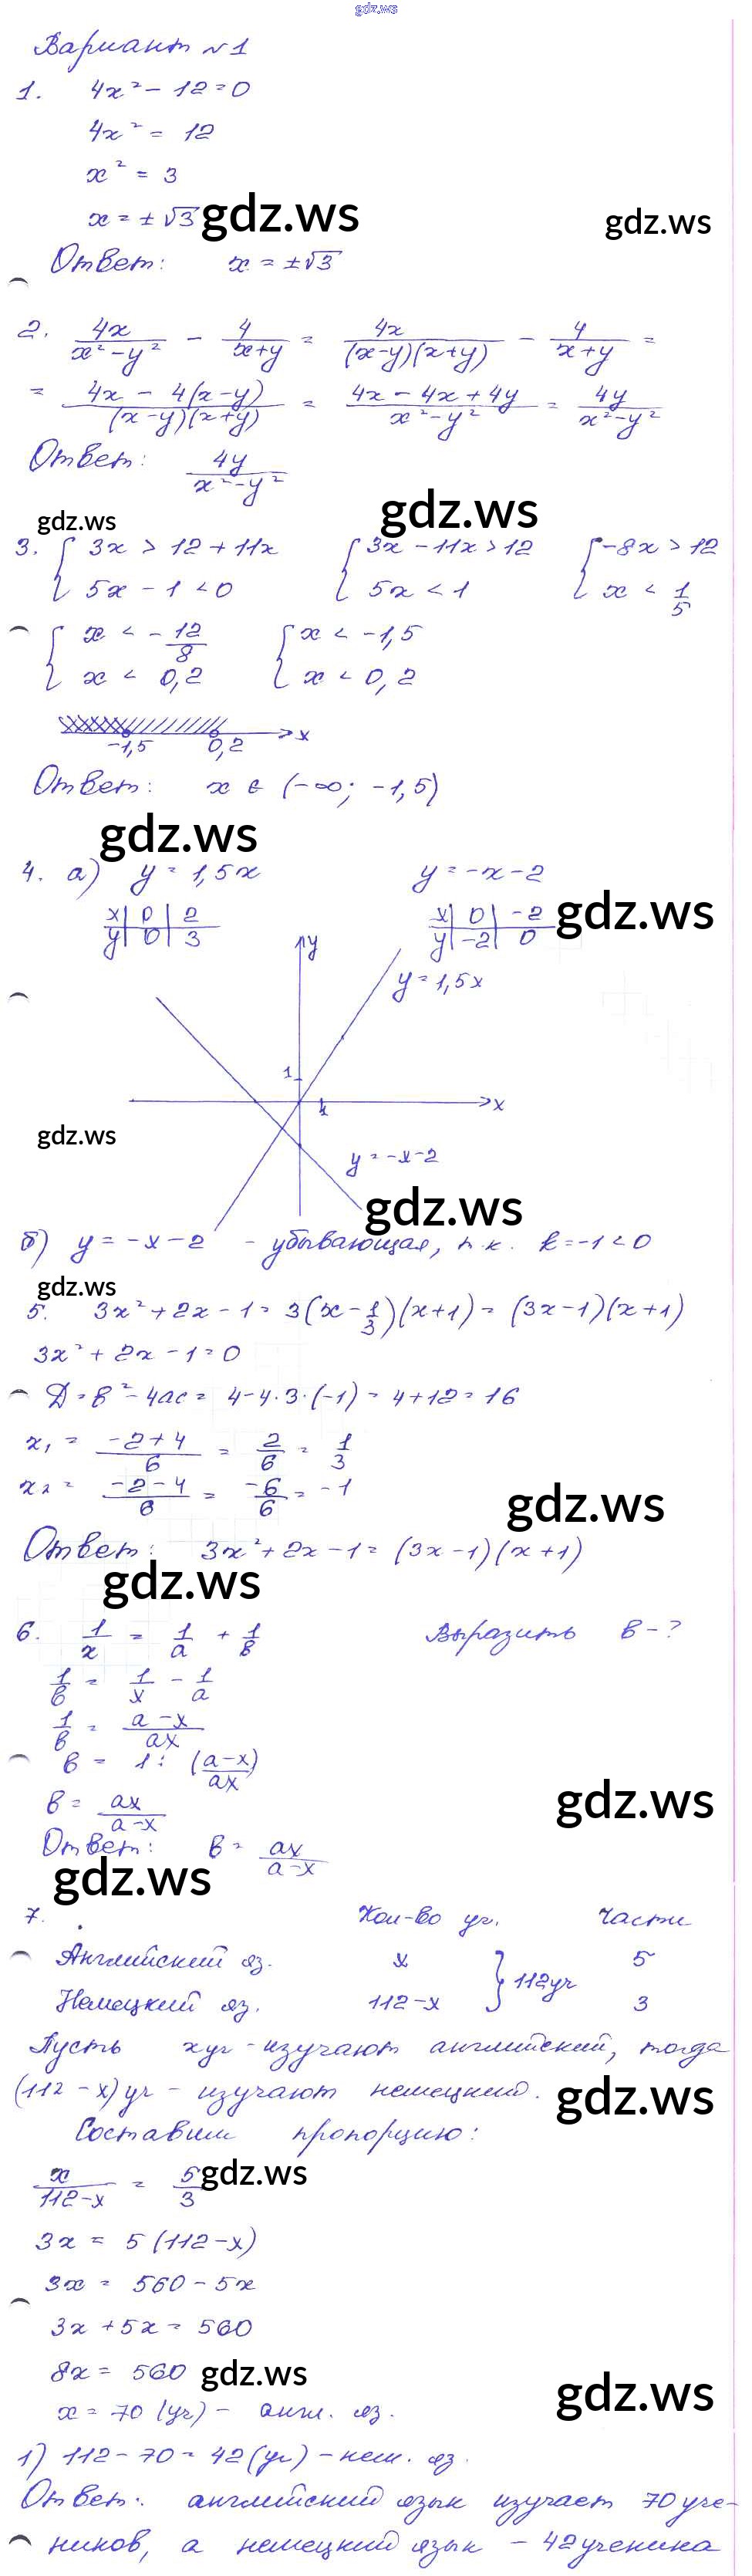 gdz.ws
Вариант №1
1. 4x² - 12 = 0
4x² = 12
x² = 3
x = ±√3 gdz.ws gdz.ws
Ответ: x = ±√3
2. 4x/(x²-y²) - 4/(x+y) = 4x/((x-y)(x+y)) - 4/(x+y) =
= (4x - 4(x-y))/((x-y)(x+y)) = (4x - 4x + 4y)/(x²-y²) = 4y/(x²-y²)
Ответ: 4y/(x²-y²)
gdz.ws gdz.ws
3. { 3x > 12 + 11x { 3x - 11x > 12 { -8x > 12
5x - 1 < 0 5x < 1 x < 1/5
{ x < -12/8 { x < -1,5
x < 0,2 x < 0,2
-1,5 0,2 x
Ответ: x ∈ (-∞; -1,5)
gdz.ws
4. а) y = 1,5x y = -x - 2
x | 0 | 2 x | 0 | -2 gdz.ws
y | 0 | 3 y | -2 | 0
y
y = 1,5x
1
1 x
gdz.ws
y = -x-2
gdz.ws
б) y = -x - 2 - убывающая, т.к. k = -1 < 0
gdz.ws
5. 3x² + 2x - 1 = 3(x - 1/3)(x+1) = (3x-1)(x+1)
3x² + 2x - 1 = 0
Д = в² - 4ac = 4 - 4·3·(-1) = 4 + 12 = 16
x₁ = (-2+4)/6 = 2/6 = 1/3
x₂ = (-2-4)/6 = -6/6 = -1
gdz.ws
Ответ: 3x² + 2x - 1 = (3x-1)(x+1)
gdz.ws
6. 1/x = 1/a + 1/в Выразить в - ?
1/в = 1/x - 1/a
1/в = (a-x)/ax
в = 1 : ((a-x)/ax)
в = ax/(a-x) gdz.ws
Ответ: в = ax/(a-x)
gdz.ws
7. Кол-во уч. Части
Английский яз. x } 112 уч 5
Немецкий яз. 112-x 3
Пусть x уч - изучают английский, тогда
(112-x) уч - изучают немецкий.
gdz.ws
Составим пропорцию:
x/(112-x) = 5/3 gdz.ws
3x = 5(112-x)
3x = 560 - 5x
3x + 5x = 560
8x = 560 gdz.ws gdz.ws
x = 70 (уч) - англ. яз.
1) 112 - 70 = 42 (уч) - нем. яз.
Ответ: английский язык изучает 70 уче-
ников, а немецкий язык - 42 ученика